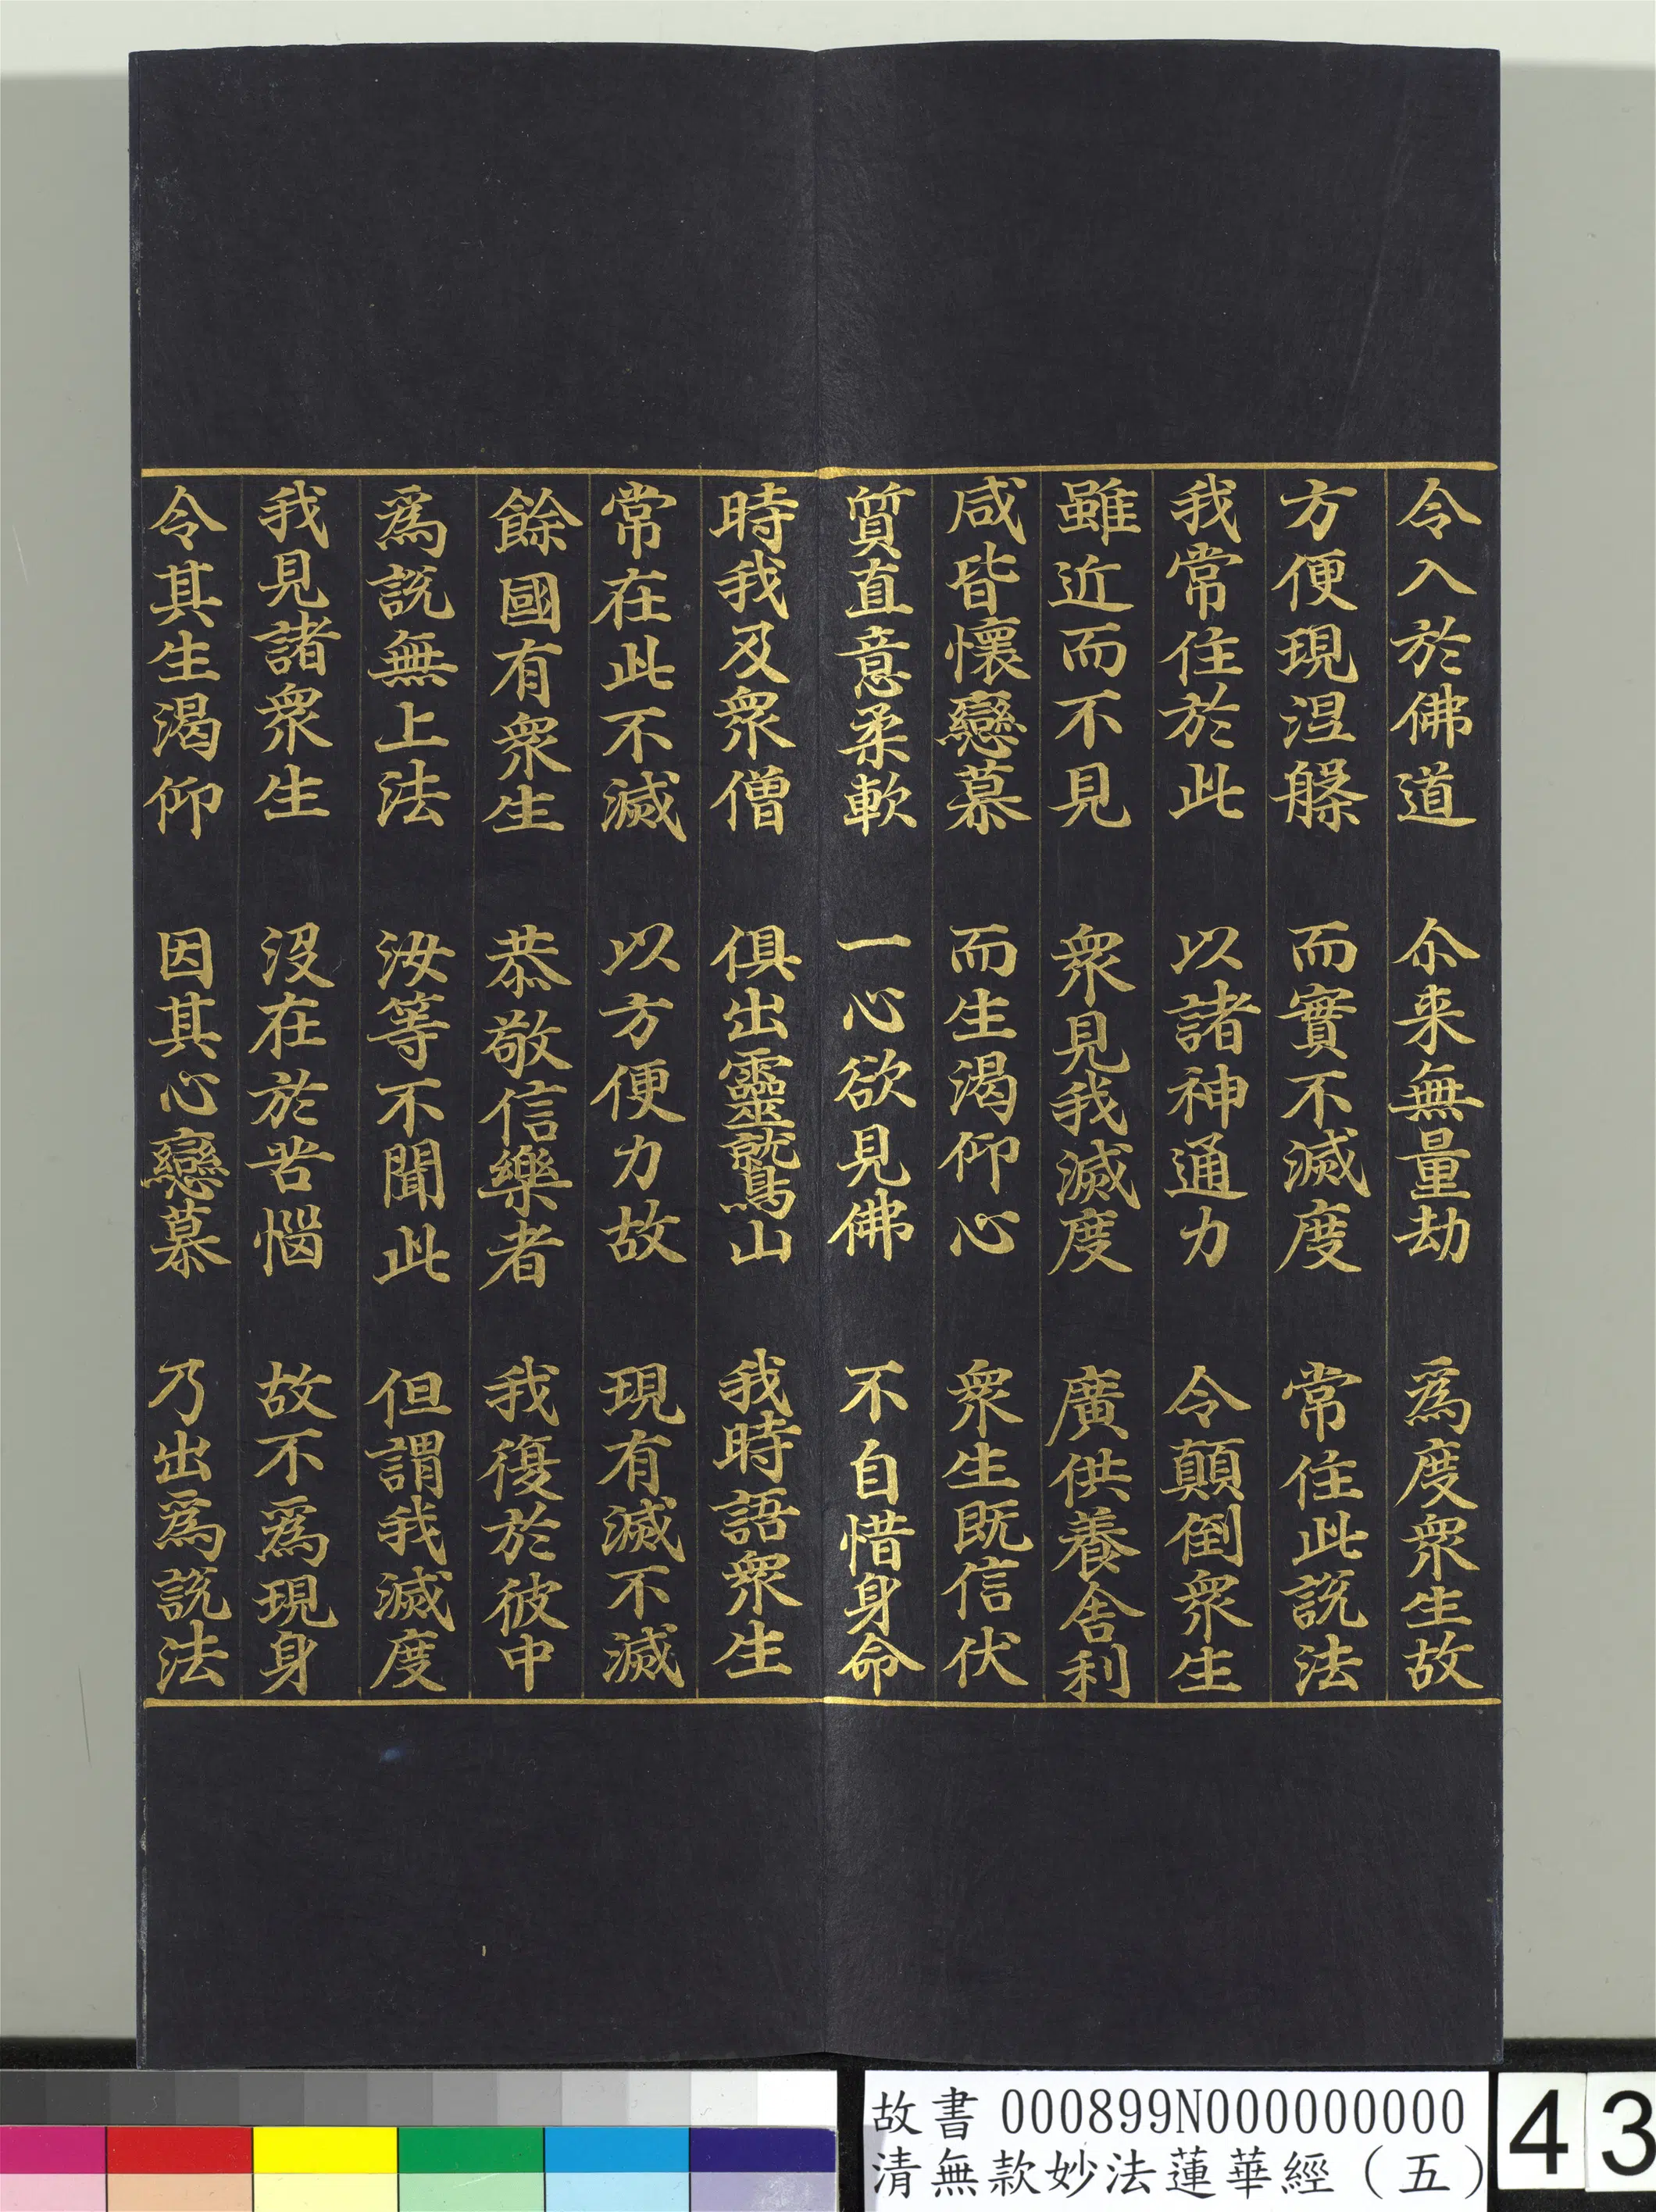 令入於佛道　尒来無量劫　爲度衆生故
方便現涅槃　而實不滅度　常住此說法
我常住於此　以諸神通力　令顛倒衆生
雖近而不見　衆見我滅度　廣供養舎利
咸皆懷戀慕　而生渴仰心　衆生既信伏
質直意柔軟　一心欲見佛　不自惜身命
時我及衆僧　俱出靈鷲山　我時語衆生
常在此不滅　以方便力故　現有滅不滅
餘國有衆生　恭敬信樂者　我復於彼中
爲說無上法　汝等不聞此　但謂我滅度
我見諸衆生　沒在於苦惱　故不爲現身
令其生渴仰　因其心戀慕　乃出爲說法
故書 000899N000000000
清無款妙法蓮華經（五）
43